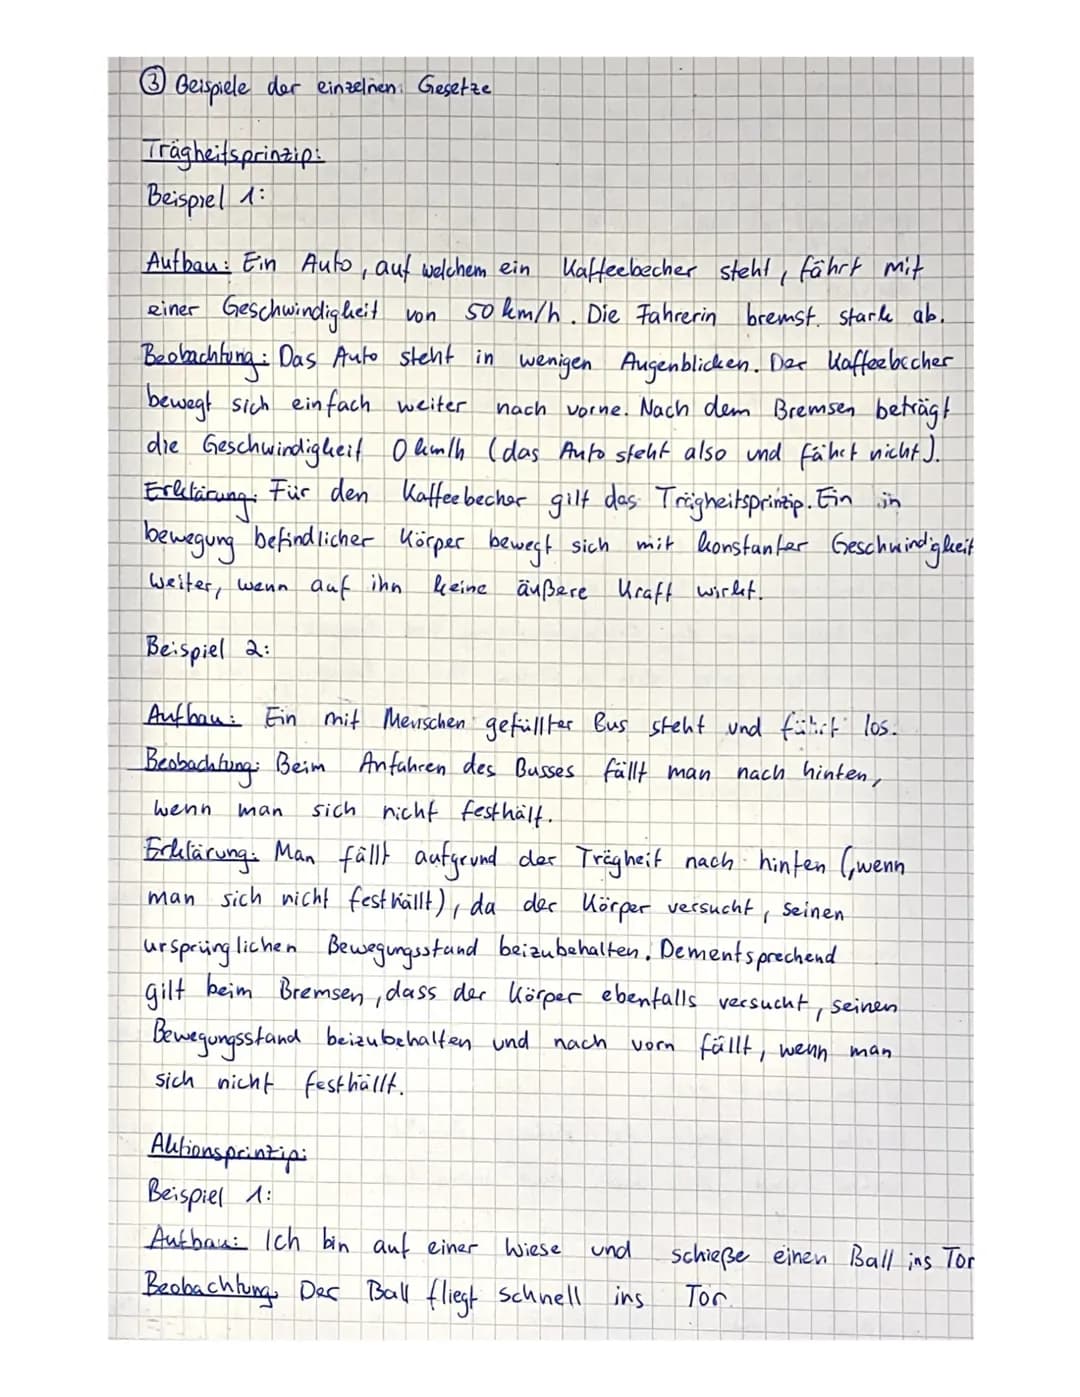 ③ Beispiele der einzelnen Gesetze
Trägheitsprinzip:
Beispiel 1:
Aufbau: Ein Auto, auf welchem ein Kaffeebecher steht, fährt mit
einer Geschwindigkeit von 50 km/h. Die Fahrerin bremst stark ab.
Beobachtung: Das Auto steht in wenigen Augenblicken. Der Kaffeebecher
bewegt sich einfach weiter nach vorne. Nach dem Bremsen beträgt
die Geschwindigkeit 0 km/h (das Auto steht also und fährt nicht).
Erklärung: Für den Kaffeebecher gilt das Trägheitsprinzip. Ein in
bewegung befindlicher Körper bewegt sich mit konstanter Geschwindigkeit
weiter, wenn auf ihn keine äußere Kraft wirkt.
Beispiel 2:
Aufbau: Ein mit Menschen gefüllter Bus steht und fährt los.
Beobachtung: Beim Anfahren des Busses fällt man nach hinten,
wenn man sich nicht festhält.
Erklärung: Man fällt aufgrund der Trägheit nach hinten (,wenn
man sich nicht festhällt), da der Körper versucht, seinen
ursprünglichen Bewegungsstand beizubehalten. Dementsprechend
gilt beim Bremsen, dass der Körper ebenfalls versucht, seinen
Bewegungsstand beizubehalten und nach vorn fällt, wenn man
sich nicht festhällt.
Aktionsprinzip:
Beispiel 1:
Aufbau: Ich bin auf einer Wiese und schieße einen Ball ins Tor
Beobachtung: Der Ball fliegt schnell ins Tor.